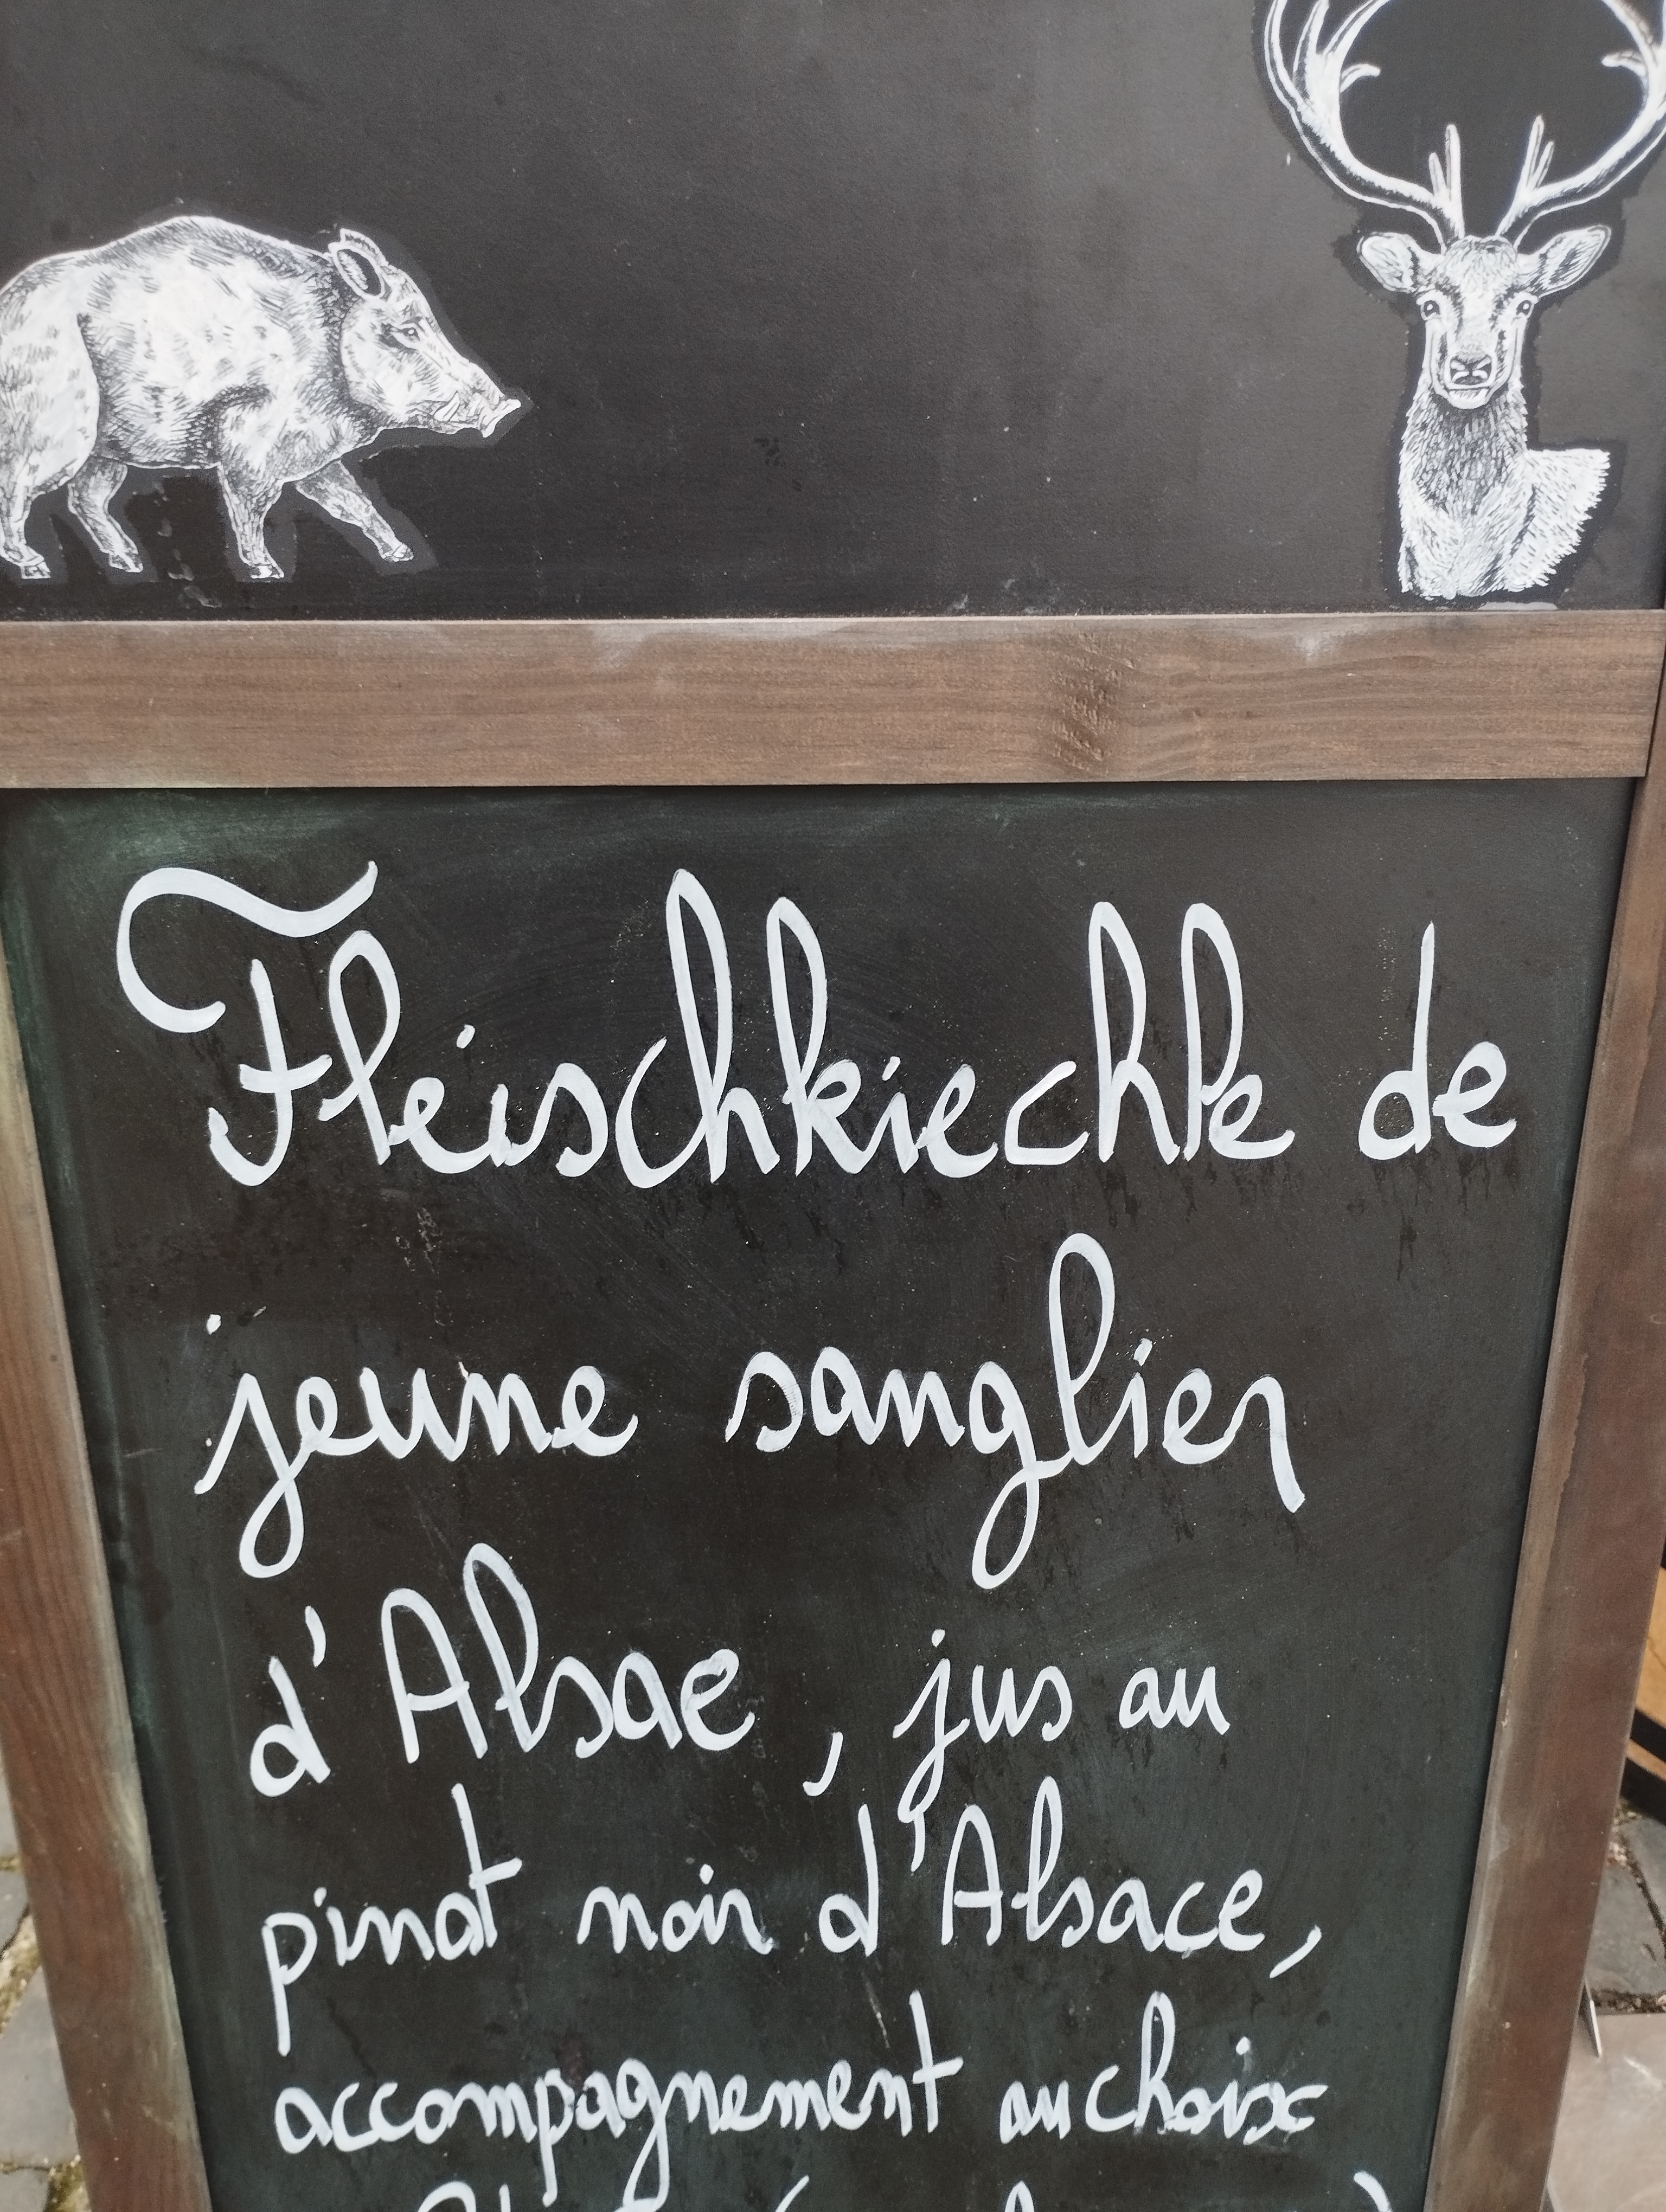 Fleischkiechle de
jeune sanglier
d'Alsace, jus au
pinot noir d'Alsace,
accompagnement au choix